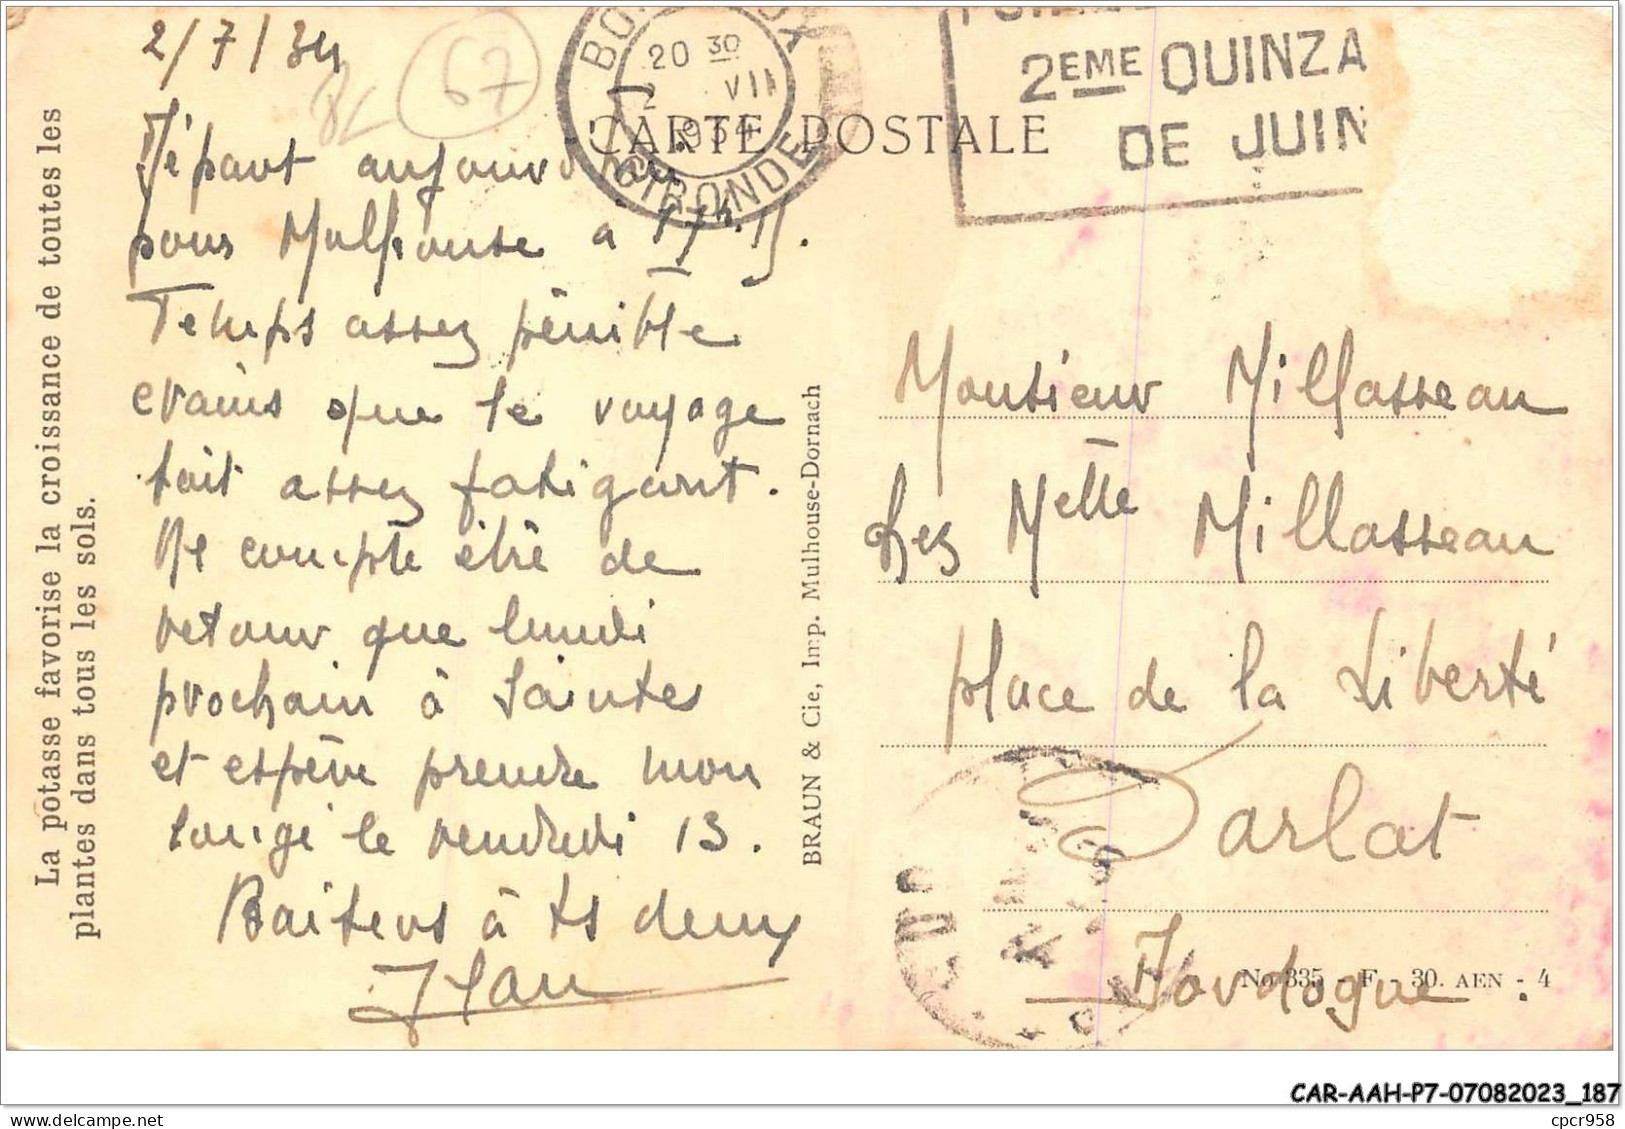 La potasse favorise la croissance de toutes les
plantes dans tous les sols.
2/7/34
67
Départ aujourd'hui
pour Mulhouse à 17h15.
Temps assez pénible
crains que le voyage
soit assez fatigant.
Ne compte être de
retour que lundi
prochain à Saintes
et espère prendre mon
congé le vendredi 13.
Baisers à ts deux
Jean
BRAUN & Cie, Imp. Mulhouse-Dornach
CARTE POSTALE
20 30
2 VII
1934
GIRONDE
2EME QUINZA
DE JUIN
Monsieur Millasseau
Les Melle Millasseau
place de la Liberté
Sarlat
Dordogne.
No 335 - F - 30. AEN - 4
CAR-AAH-P7-07082023_187
cpcr958